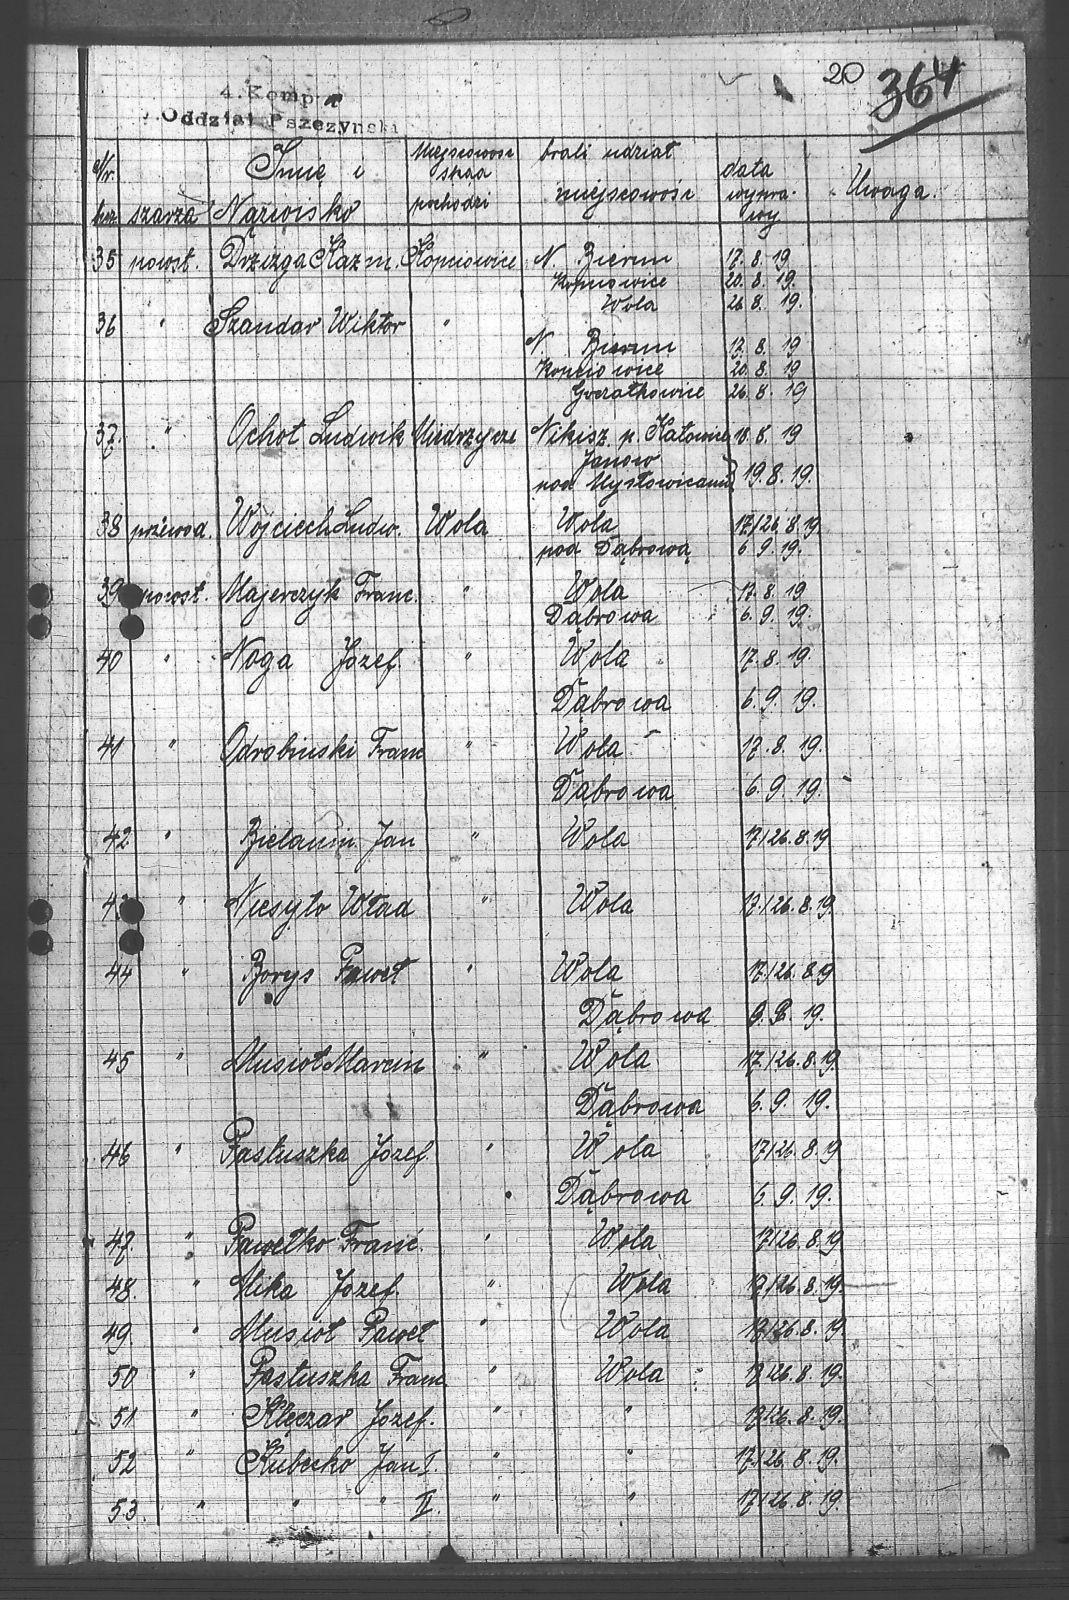 20 364
4. Komp.
Oddział Pszczyński
Nr. bież. szarża Imię i Nazwisko Miejscowość skąd pochodzi brali udział miejscowość data wyprawy Uwaga.
35 powst. Drzizga Kazm. Kopciowice N. Bierun 17. 8. 19
Kopciowice 20. 8. 19.
Wola 26 8. 19.
36 " Szandar Wiktor "
N. Bierun 17. 8. 19
Kopciowice 20. 8. 19
Goczałkowice 26. 8. 19
37. " Ochot Ludwik Miedrzycze Nikisz p. Katowice 18. 8. 19
Janow
pod Mysłowicami } 19. 8. 19.
38 przewod. Wojciech Ludw. Wola Wola 17/26. 8. 19.
pod Dąbrową 6. 9. 19.
39 powst. Majerczyk Franc. " Wola 17. 8. 19
Dąbrowa 6. 9. 19.
40 " Noga Józef " Wola 17. 8. 19.
Dąbrowa 6. 9. 19.
41 " Odrobinski Franc " Wola 17. 8. 19.
Dąbrowa 6. 9. 19.
42 " Jan " Wola 17/26. 8. 19
43 " Niesyto Wład " Wola 17/26. 8. 19.
44 " Borys Paweł " Wola 17/26. 8. 19
Dąbrowa 19.
45 " Musioł Marcin " Wola 17/26. 8. 19.
Dąbrowa 6. 9. 19.
46 " Pastuszka Józef " Wola 17/26. 8. 19
Dąbrowa 6. 9. 19.
47. " Pawełko Franc. " Wola 17/26. 8. 19
48. " Mika Józef. " Wola 17/26. 8. 19.
49. " Musioł Paweł " Wola 17/26. 8. 19.
50 " Pastuszka Franc " Wola 17/26. 8. 19.
51 " Klęczar Józef. " " 17/26. 8. 19.
52 " Kubeczko Jan I. " " 17/26. 8. 19.
53. " " " II. " " 17/26. 8. 19.